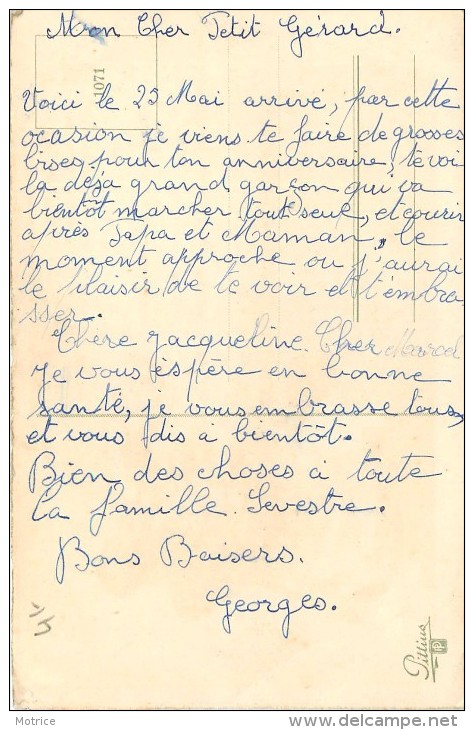 Mon Cher Petit Gérard.
1071
Voici le 23 Mai arrivé, par cette
ocasion je viens te faire de grosses
bises pour ton anniversaire, te voi
la déja grand garçon qui va
bientôt marcher tout seul, et courir
après Papa et Maman, le
moment approche ou j'aurai
le plaisir de te voir et t'embra
sser.
Chere Jacqueline. Cher Marcel
Je vous éspère en bonne
santé, je vous embrasse tous,
et vous dis à bientôt.
Bien des choses à toute
la famille Sevestre.
Bons Baisers.
Georges.
Motrice
www.delcampe.net